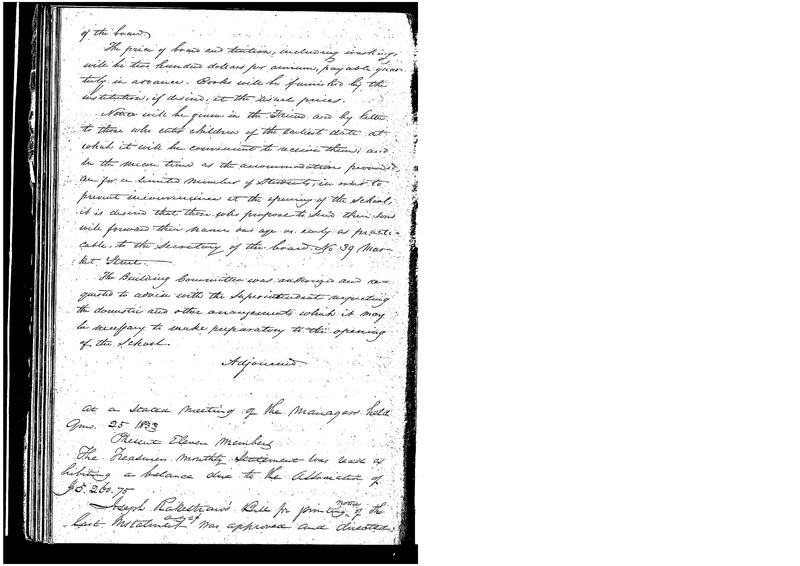 of the board.
The price of board and tuition, including washing,
will be two hundred dollars per annum, payable quar-
terly in advance. Books will be furnished by the
institution, if desired, at the usual prices.
Notice will be given in the Friend and by letter
to those who enter children of the earliest date at
which it will be convenient to receive them; and
in the mean time as the accommodation provided,
are for a limited number of Students, in order to
prevent inconvenience at the opening of the School,
it is desired that those who propose to send their sons
will forward their names and age as early as practi-
cable, to the Secretary of the board. No 39 Mar-
ket Street.
The Building Committee was authorized and re-
quested to advise with the Superintendent respecting
the domestic and other arrangements which it may
be necessary to make preparatory to the opening
of the School.
Adjourned.
At a stated meeting of the Managers held
9mo. 25 1833
Present Eleven Members
The Treasurers monthly Statement was read ex
hibiting a balance due to the Association of
$5.260.75
Joseph Rakestraw's Bill for printing notice of the
last Instalment was approved and directed